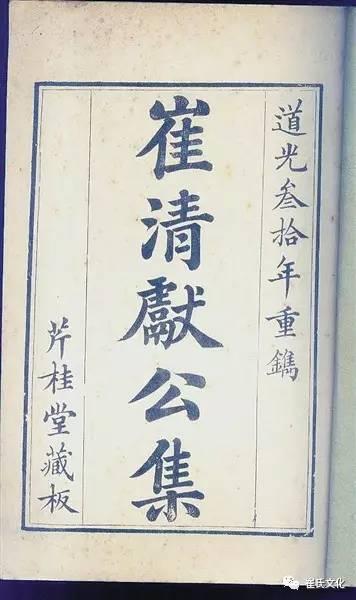 道光叁拾年重鐫
崔清獻公集
芹桂堂藏板
崔氏文化